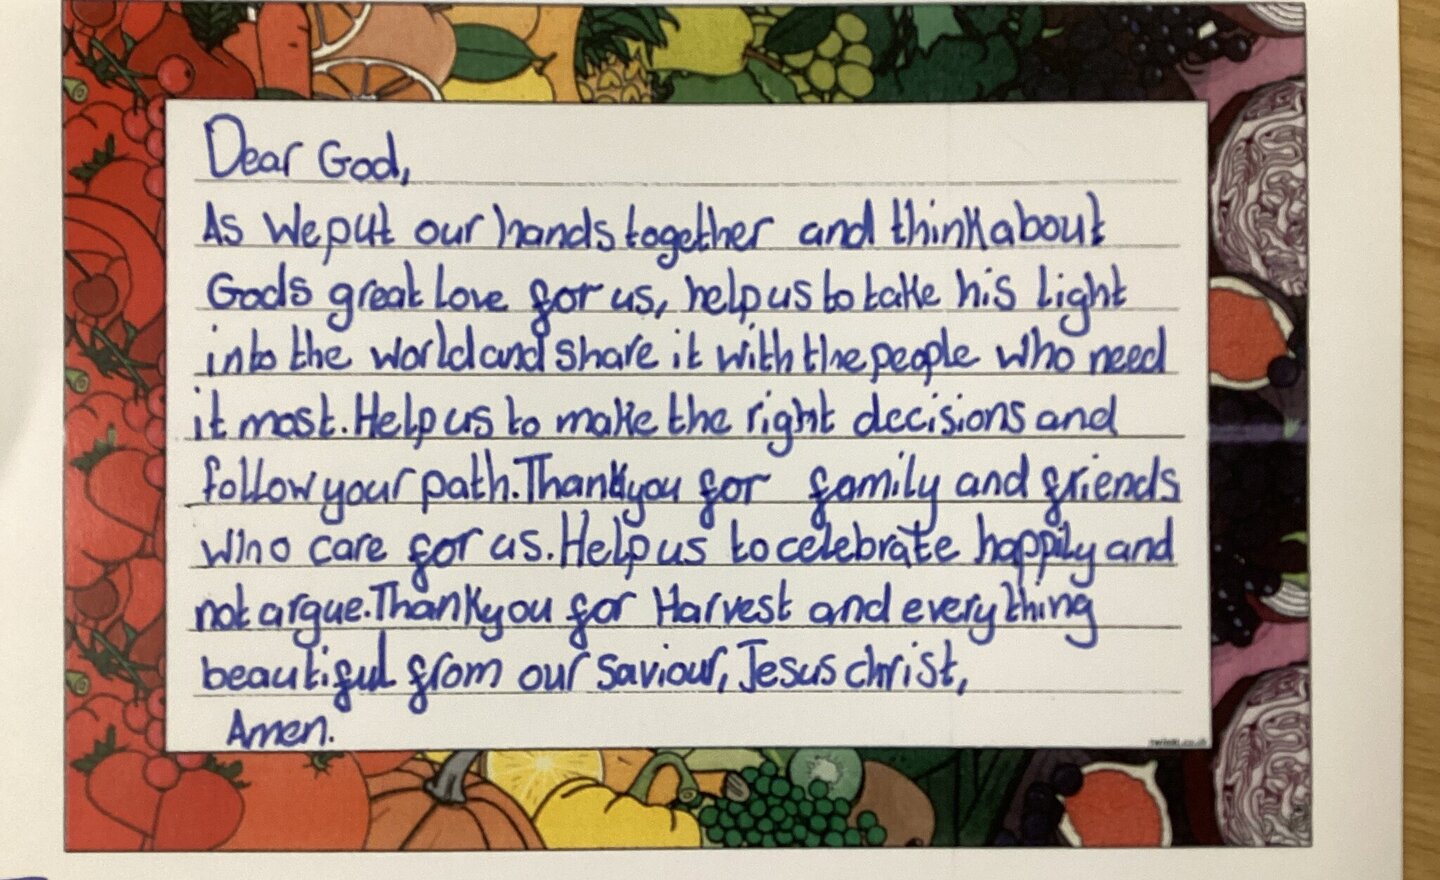 Dear God,
As we put our hands together and think about
Gods great love for us, help us to take his light
into the world and share it with the people who need
it most. Help us to make the right decisions and
follow your path. Thank you for family and friends
who care for us. Help us to celebrate happily and
not argue. Thank you for Harvest and everything
beautiful from our saviour, Jesus christ,
Amen.
twinkl.co.uk